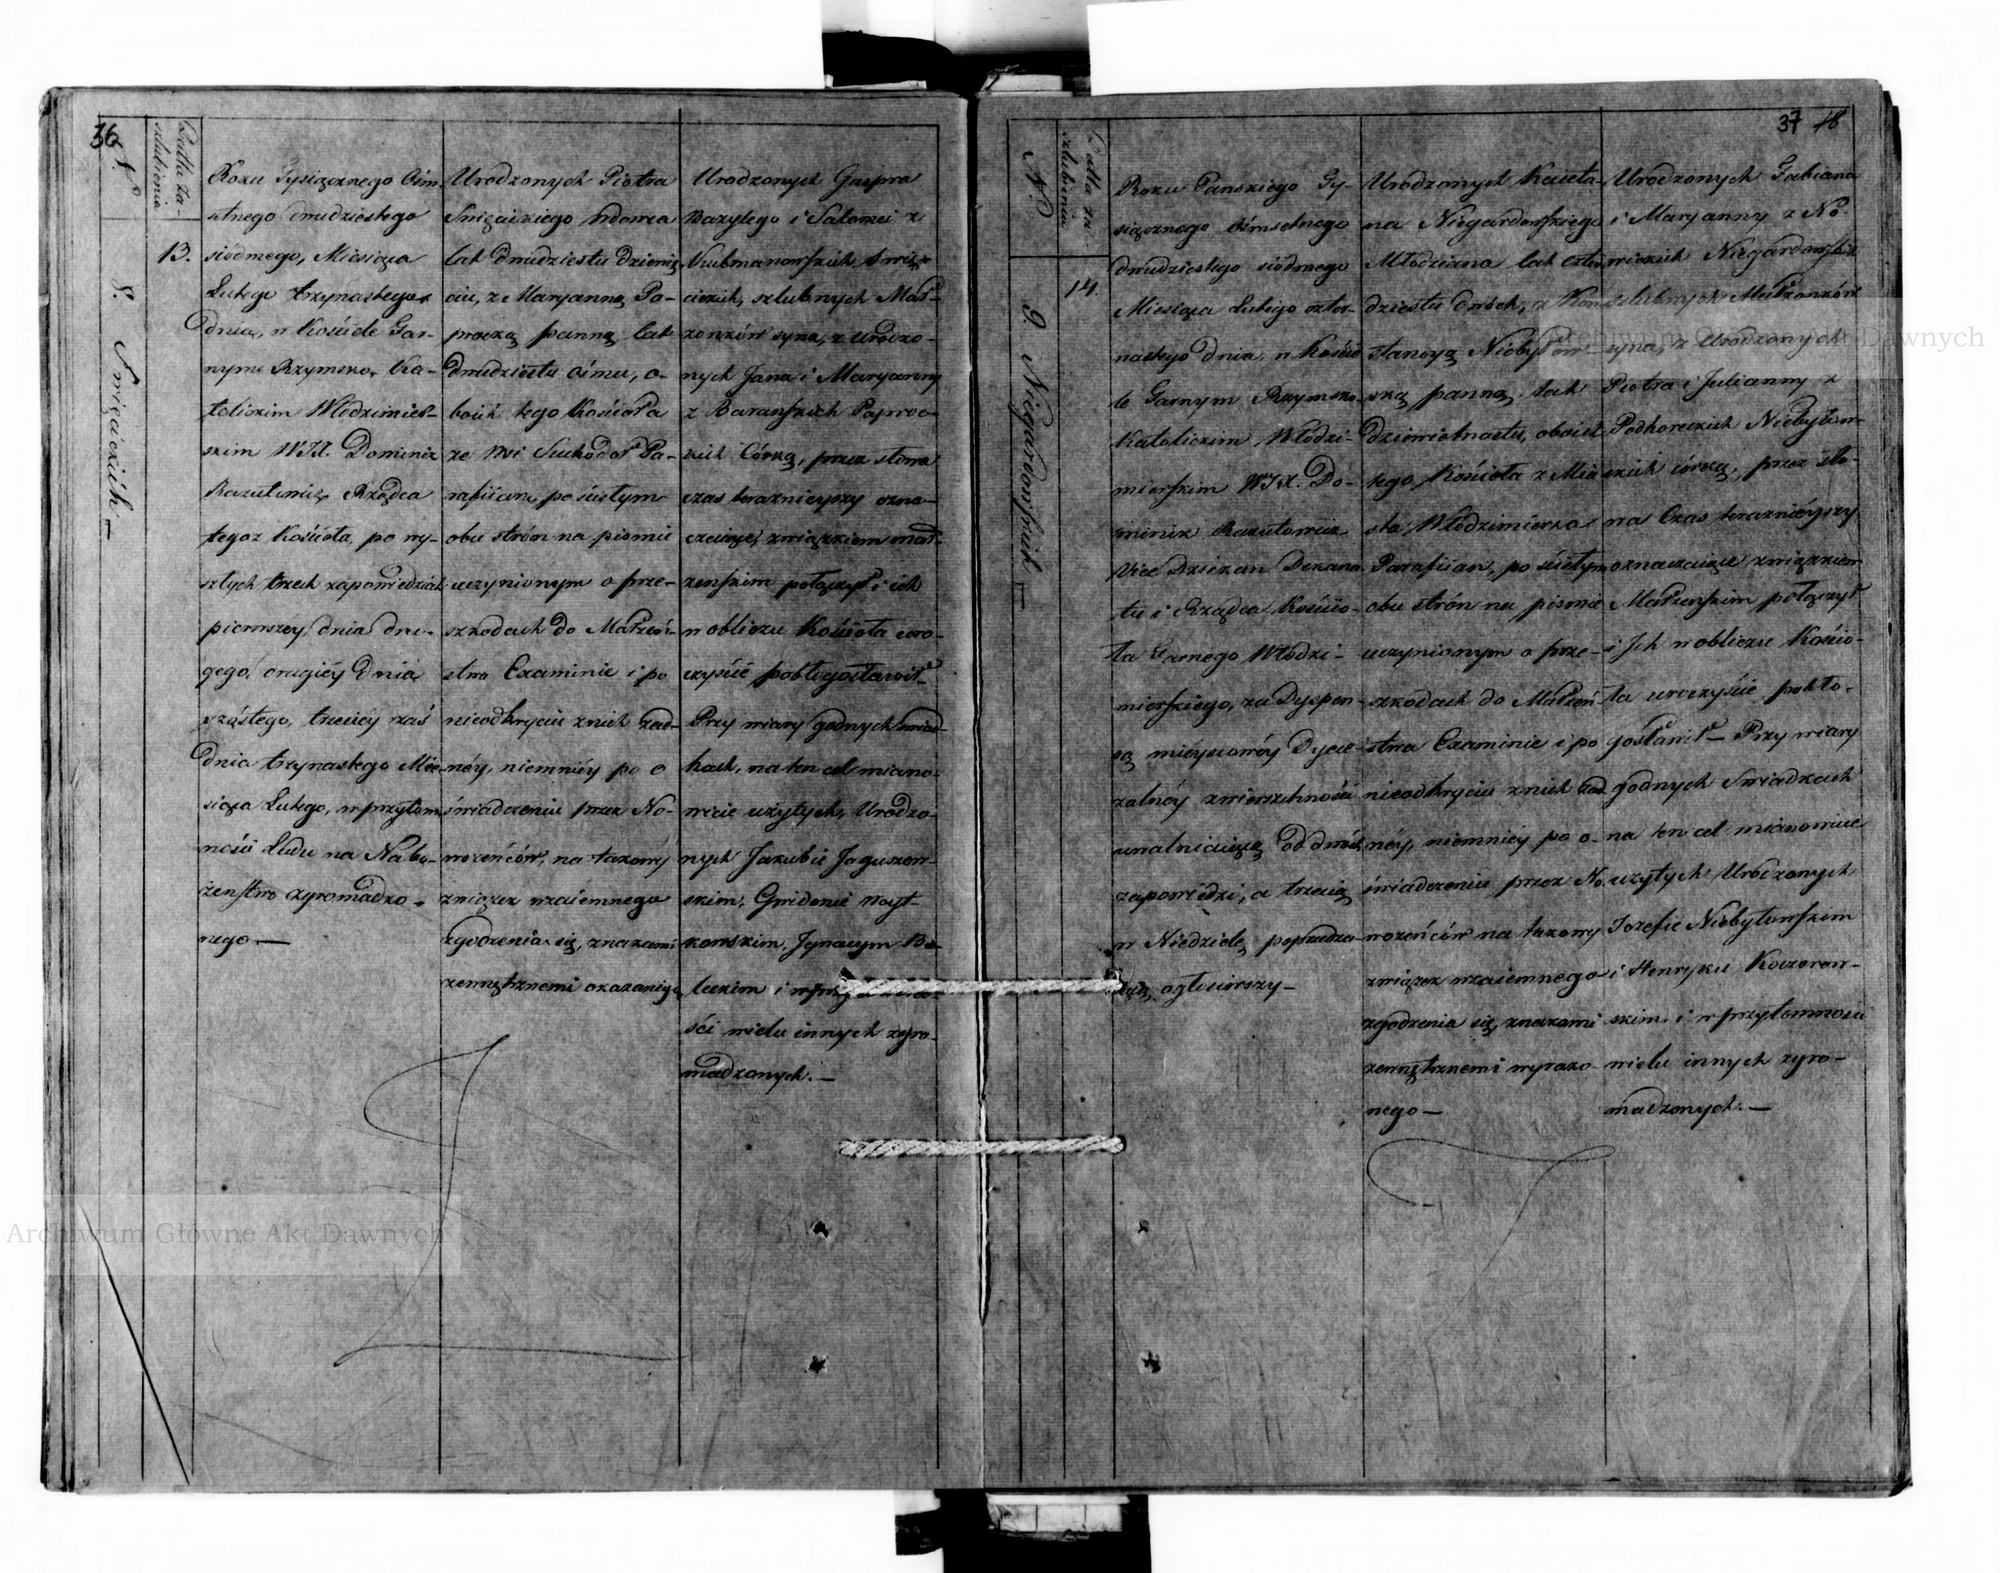 36
N.
Datta za-
szlubienia
13.
8. Swięcickich —
Roku Tysiącznego Ośm
setnego dwudziestego
siódmego, Miesiąca
Lutego trzynastego
dnia, w Kościele Far-
nym Rzymsko Ka-
tolickim Włodzimier-
skim WJX. Dominik
Razutowicz Rządca
tegoż Kościoła, po wy-
szłych trzech zapowiedziach
pierwszéy dnia dru-
giego, drugiéy dnia
szóstego, trzeciéy zaś
dnia trzynastego Mie-
siąca Lutego, w przytom-
ności Ludu na Nabo-
żeństwo zgromadzo-
nego —
Urodzonych Piotra
Swięcickiego Wdowca
lat dwudziestu dziewię-
ciu, z Maryanną Pa-
procką panną lat
dwudziestu ośmu, o-
boich tego Kościoła
ze Wsi Suchodoł Pa-
rafiian, po ścisłym
obu strón na piśmie
uczynionym o prze-
szkodach do Małżeń-
stwa Examinie i po
nieodkryciu z nich żad-
néy, niemniéy po o
świadczeniu przez No-
wożeńców, na takowy
związek wzaiemnego
zgodzenia się, znakami
zewnętrznemi okazaniu
Urodzonych Gaspra
Bazylego i Salomei z
Kulmanowskich Swię-
cickich, szlubnych Mał-
żonków syna, z urodzo-
nych Jana i Maryanny
z Barańskich Paproc-
kich Córką, przez słowa
czas teraznieyszy ozna-
czaiące, związkiem mał-
żeńskim połączył i ich
w obliczu Kościoła uro-
czyście pobłogosławił
Przy wiary godnych świad-
kach, na ten cel miano-
wicie użytych, Urodzo-
nych Jakubie Jaguszew-
skim, Gwidonie Woyt-
kowskim, Jgnacym
leckim i w
ści wielu innych zgro-
madzonych. —
37 18
N.
Datta za-
szlubienia
14.
9. Niegardowskich —
Roku Pańskiego Ty-
siącznego ośmsetnego
dwudziestego siódmego
Miesiąca Lutego czter-
nastego dnia, w Kościе
le Farnym Rzymsko
Katolickim Włodzi-
mierskim WJX. Do-
minik Razutowicz
Vice Dziekan Dekana
tu i Rządca Kościo-
ła Farnego Włodzi-
mierskiego, za Dyspen-
są mieyscowéy Dyece-
zalnéy zwierzchności
uwalniaiącą od dwóch
zapowiedzi, a trzecią
w Niedzielę poprzedza-
iącą ogłosiwszy —
Urodzonych Kaieta-
na Niegardowskiego
Młodziana lat czter-
dziestu dwóch, z Kon-
stancyą Niebyłow-
ską panną, lat
dziewietnastu, oboich
tego Kościoła z Mia
sta Włodzimierza
Parafiian, po ścisłym
obu strón na piśmie
uczynionym o prze-
szkodach do Małżeń-
stwa Examinie i po
nieodkryciu z nich żad-
néy, niemniéy po o-
świadczeniu przez No-
wożeńców na takowy
związek wzaiemnego
zgodzenia się, znakami
zewnętrznemi wyrażo-
nego —
Urodzonych Fabiana
i Maryanny z No-
wickich Niegardowskich
szlubnych Małżonków
syna, z Urodzonych
Piotra i Julianny z
Podhoreckich Niebyłow-
skich córką, przez sło-
wa Czas teraznieyszy
oznaczaiące związkiem
Małżeńskim połączył
i Jch w obliczu Kościo-
ła uroczyście pobło-
gosławił — Przy wiary
godnych Swiadkach
na ten cel mianowicie
użytych Urodzonych
Jozefie Niebyłowskim
i Henryku Koczorow-
skim, i w przytomności
wielu innych zgro-
madzonych. —
Archiwum Głowne Akt Dawnych
Archiwum Głowne Akt Dawnych